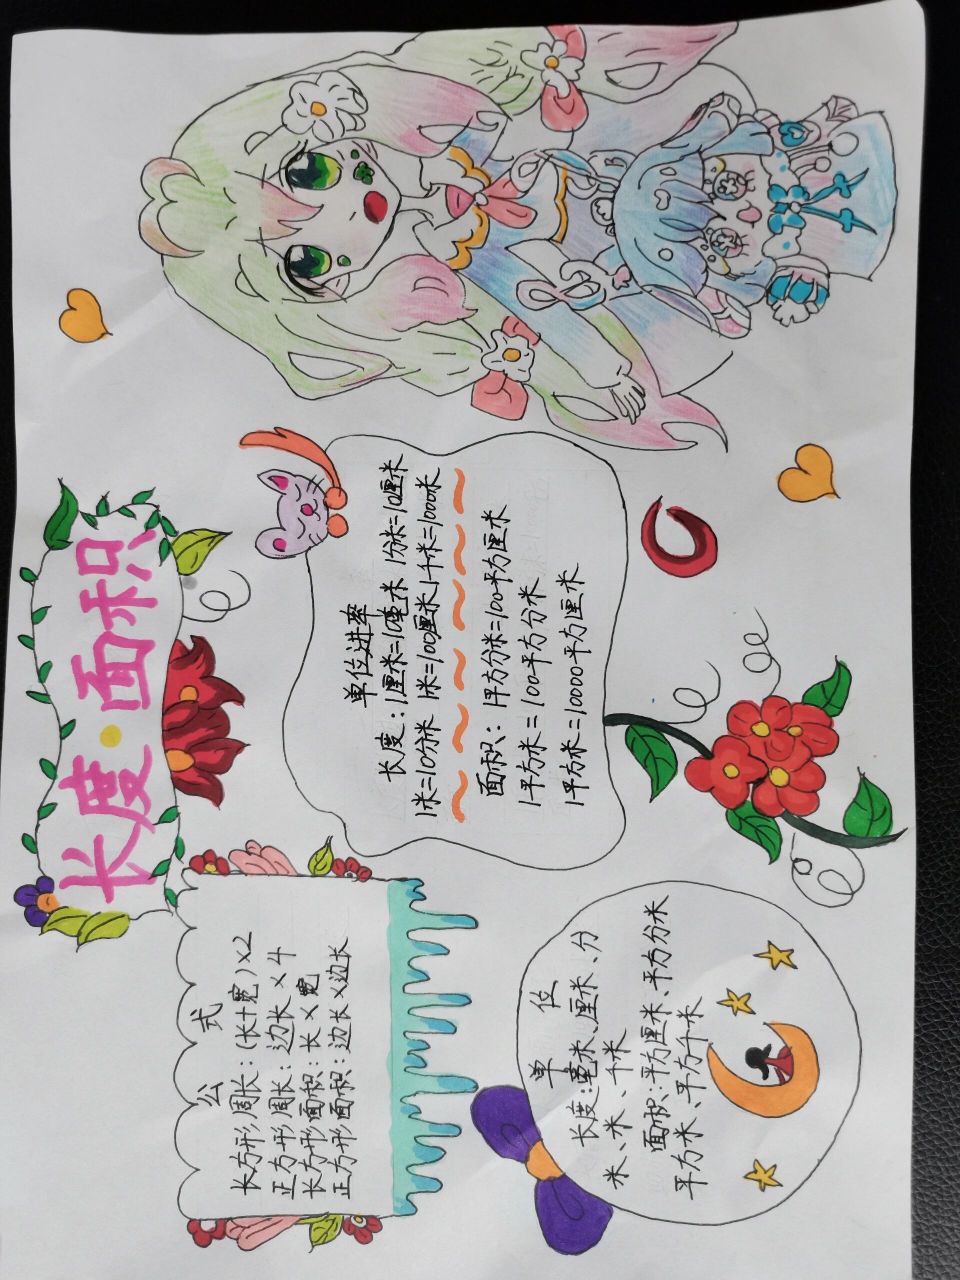 长度·面积
公式
长方形周长：(长+宽)×2
正方形周长：边长×4
长方形面积：长×宽
正方形面积：边长×边长
单位进率
长度：1厘米=10毫米 1分米=10厘米
1米=10分米 1米=100厘米 1千米=1000米
面积：1平方分米=100平方厘米
1平方米=100平方分米
1平方米=10000平方厘米
单位
长度：毫米、厘米、分
米、米、千米
面积：平方厘米、平方分米
平方米、平方千米